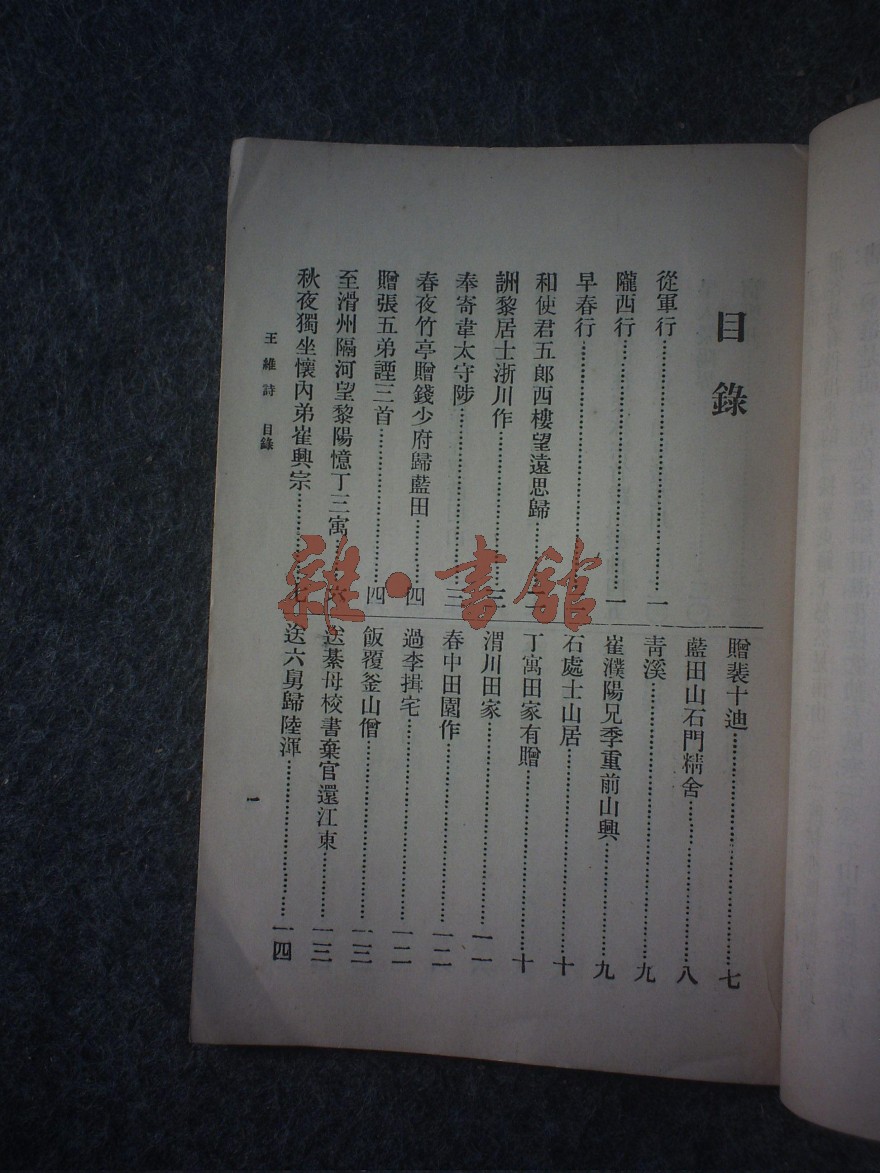 目錄
從軍行……一
隴西行……一
早春行……二
和使君五郎西樓望遠思歸……二
詶黎居士淅川作……三
奉寄韋太守陟……三
春夜竹亭贈錢少府歸藍田……四
贈張五弟諲三首……四
至滑州隔河望黎陽憶丁三寓……六
秋夜獨坐懷內弟崔興宗……七
贈裴十迪……七
藍田山石門精舍……八
青溪……九
崔濮陽兄季重前山興……九
石處士山居……十
丁寓田家有贈……十
渭川田家……一一
春中田園作……一二
過李揖宅……一二
飯覆釜山僧……一三
送綦母校書棄官還江東……一三
送六舅歸陸渾……一四
王維詩 目錄
一
雜·書館